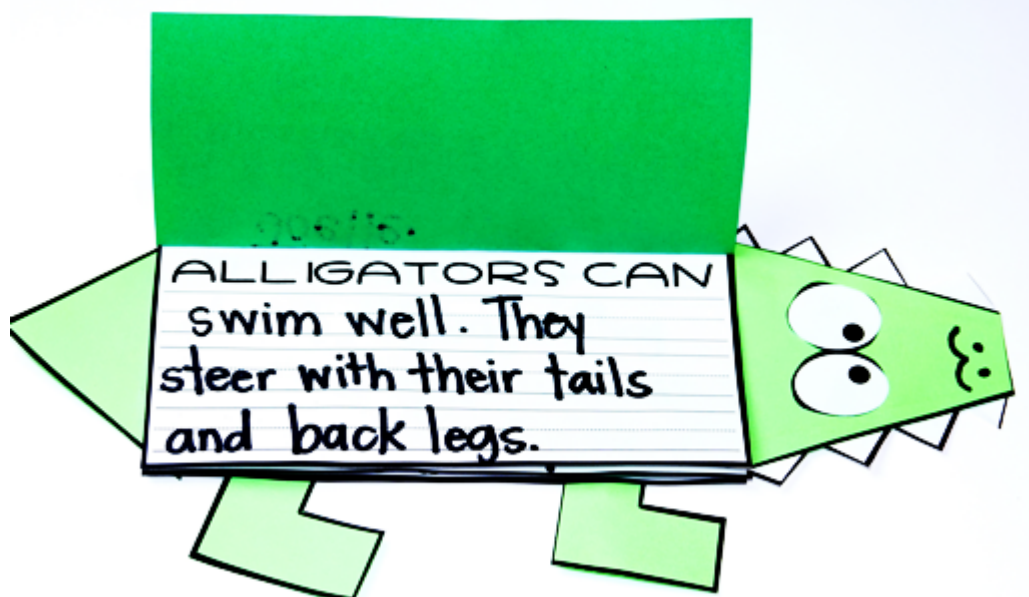 ALLIGATORS CAN
swim well. They
steer with their tails
and back legs.